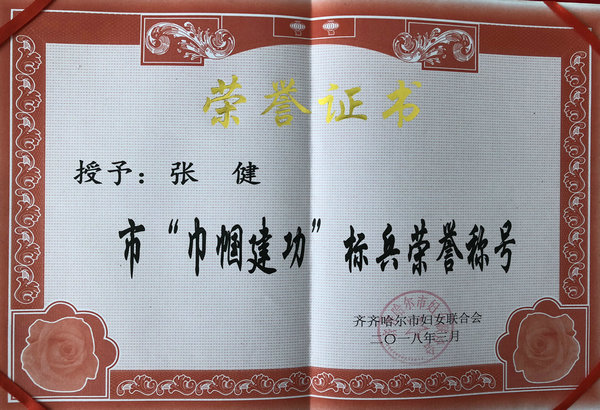 荣誉证书
授予：张 健
市“巾帼建功”标兵荣誉称号
齐齐哈尔市妇女联合会
二〇一八年三月